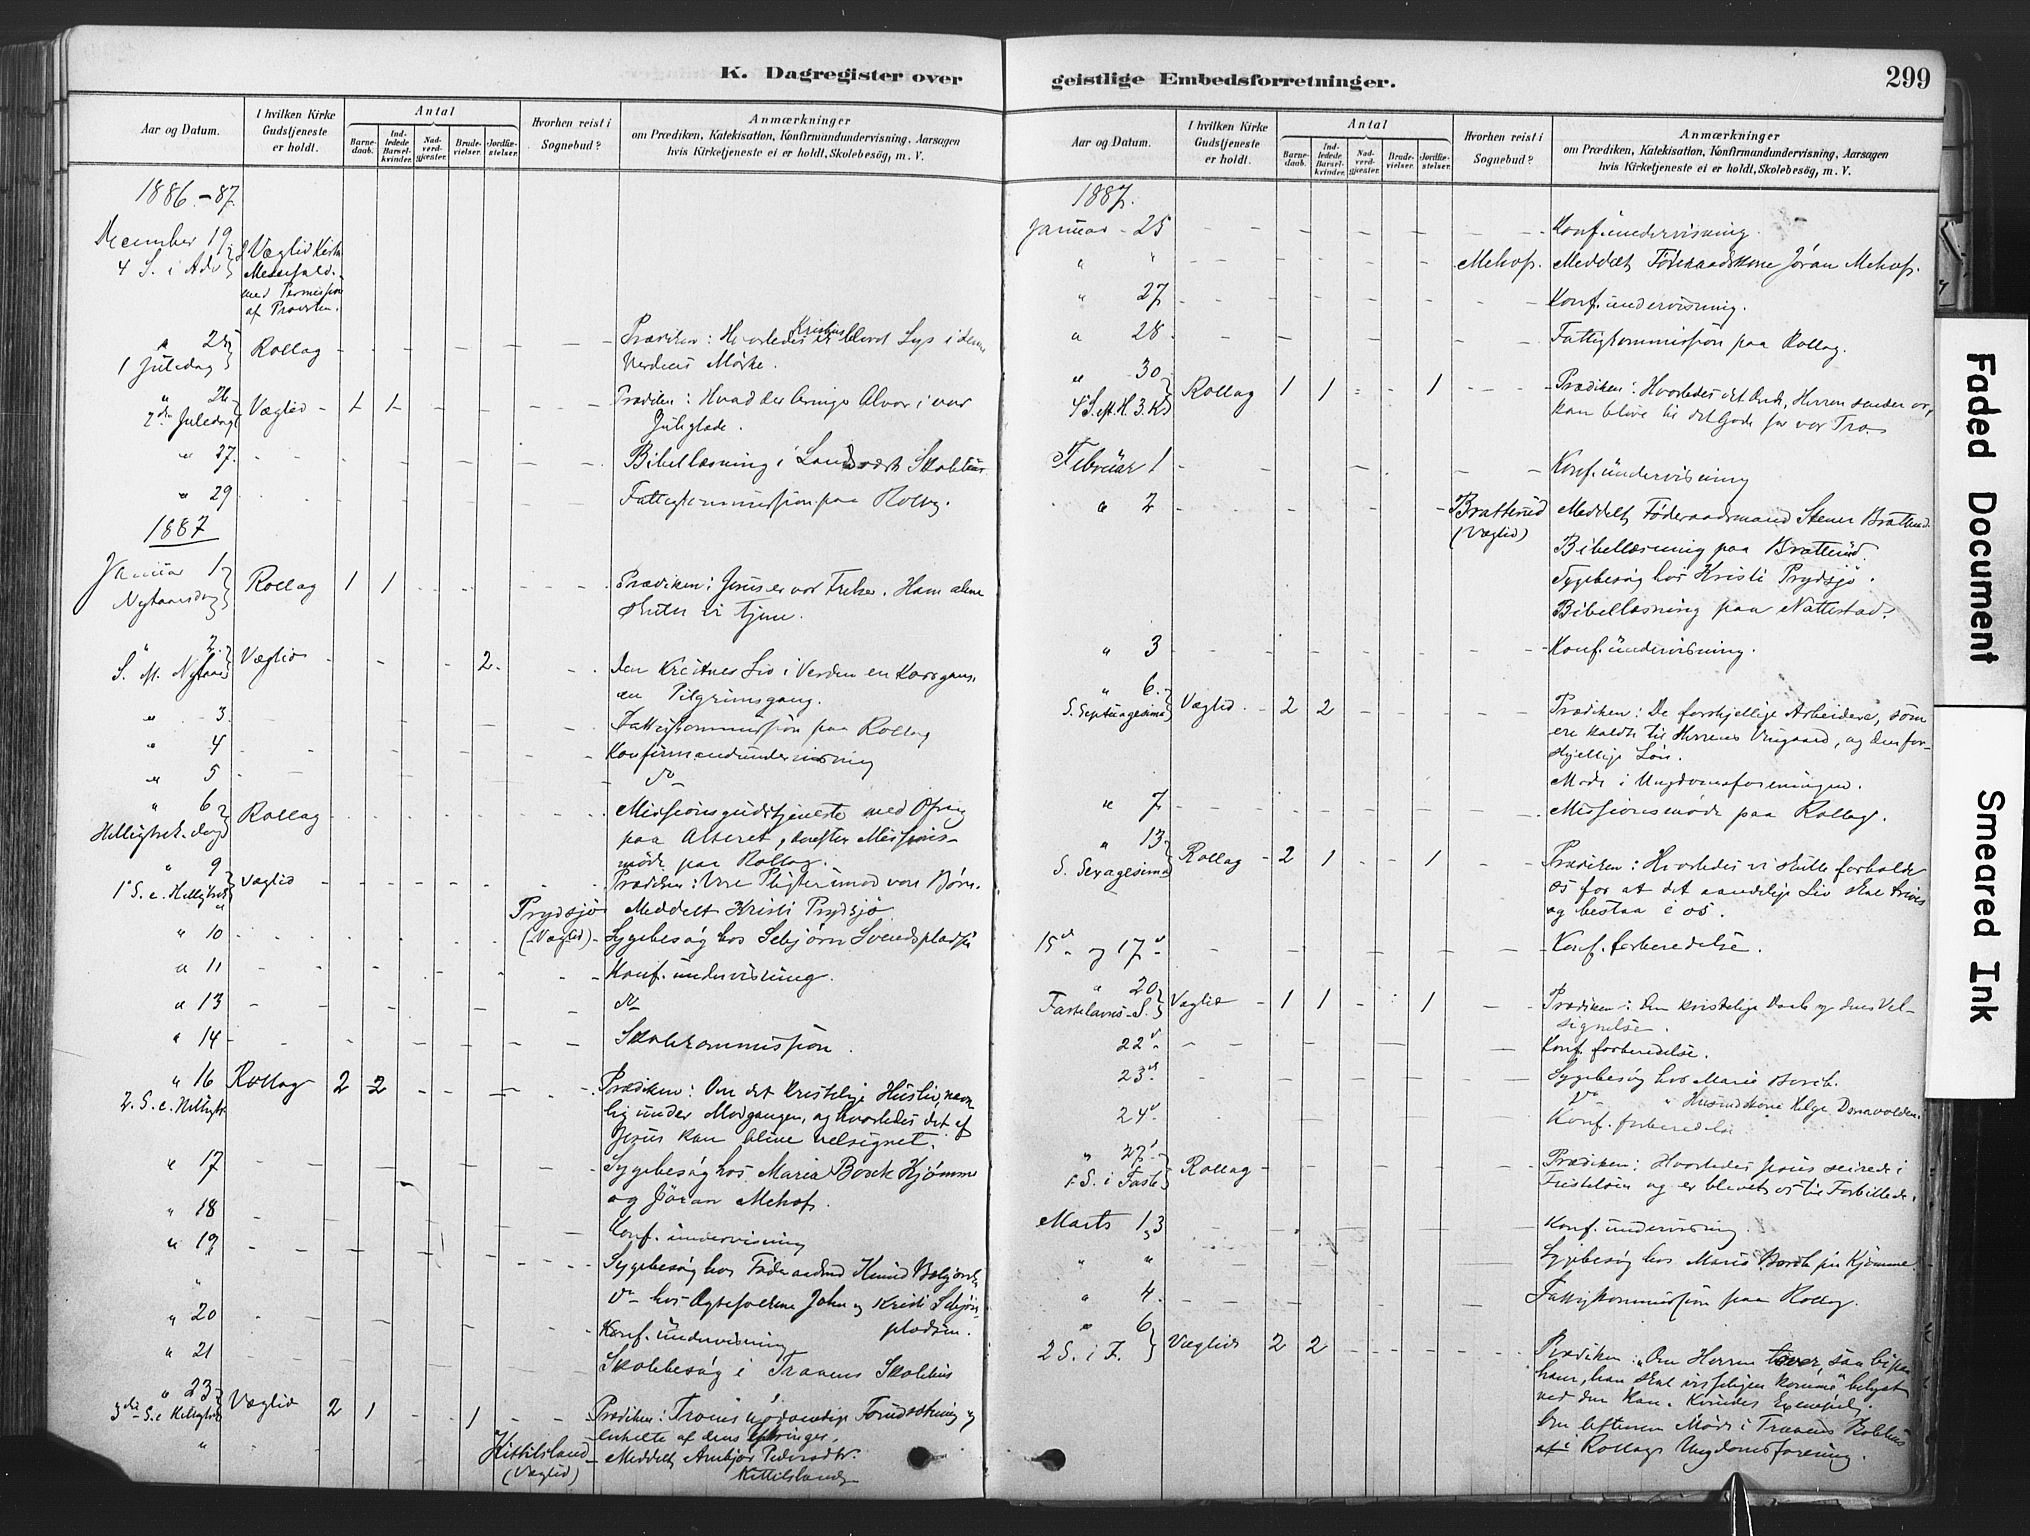 K. Dagregister over
Aar og Datum.
I hvilken Kirke Gudstjeneste er holdt.
Antal
Barnedaab.
Indledede Barselkvinder.
Nadverdgjester.
Brudevielser.
Jordfæstelser.
Hvorhen reist i Sognebud?
Anmærkninger
om Prædiken, Katekisation, Konfirmandundervisning, Aarsagen
hvis Kirketjeneste ei er holdt, Skolebesög, m. V.
1886-87.
December 19 4 S. i Adv. Væglid Kirke
Messefald
med Permission
af Provsten.
" 25 1 Juledag Rollag Prædiken: Hvorledes Kristus er blevet Lys i denne
Verdens Mørke.
" 26 2den Juledag Væglid 1 1 Prædiken: Hvad der bringer Alvor i vor
Juleglæde.
" 27. Bibellæsning i Skolehus.
" 29 Fattigkommission paa Rollag.
1887
Januar 1 Nytaarsdag Rollag 1 1 Prædiken: Jesus er vor Frelser. Ham alene
skulle vi tjene.
" 2. S. M. Nytaar Væglid 2. Den Kristnes Liv i Verden en Korsgang,
en Pilgrimsgang.
" 3. Fattigkommission paa Rollag
" 4 Konfirmandundervisning
" 5
" 6 Helligtrek. dag Rollag Missionsgudstjeneste med Ofring
paa Alteret, derefter Missions-
møde paa Rollag.
" 9 1 S. e. Helligtrek Væglid Prædiken: Vore Pligter imod vore Børn.
" Prydsjø (Væglid) Meddelt Kristi Prydsjø
" 10 Sygebesøg hos Sebjørn Svendspladsen
" 11 Konf. undervisning.
" 13
" 14 Skolekommission.
" 16 2. S. e. Helligtr. Rollag 2 2 Prædiken: Om det kristelige Husliv, nem-
lig under Modgangen, og hvorledes det af
Jesus kan blive velsignet.
" 17 Sygebesøg hos Maria Borch Kjømme
og Jöran Mehof.
" 18 Konf. undervisning
" 19 Sygebesøg hos Föderaadsmd Knud
" Do hos Ægtefolkene John og Kristi Sebjörns-
pladsen.
" 20 Konf. undervisning
" 21 Skolebesøg i Traaens Skolehus
" 23 3die S. e. Helligtrek Væglid 2 1 1 Prædiken: Troens nødvendige Forudsætning og
enkelte af dens Ytringer.
" Kittilsland (Væglid) Meddelt Ambjør Pedersdtr.
Kittilsland
geistlige Embedsforretninger.
299
Aar og Datum.
I hvilken Kirke Gudstjeneste er holdt.
Antal
Barnedaab.
Indledede Barselkvinder.
Nadverdgjester.
Brudevielser.
Jordfæstelser.
Hvorhen reist i Sognebud?
Anmærkninger
om Prædiken, Katekisation, Konfirmandundervisning, Aarsagen
hvis Kirketjeneste ei er holdt, Skolebesög, m. V.
1887.
Januar 25 Konf. undervisning.
" " Mehof. Meddelt Føderaadskone Jöran Mehof.
" 27 Konf. undervisning.
" 28 Fattigkommission paa Rollag.
" 30 4 S. eft. H. 3. K. Rollag 1 1 1 Prædiken: Hvorledes det Onde, Herren sender os,
kan blive til det Gode for vor Tro.
Februar 1 Konf. undervisning
" 2 Brattrud (Væglid) Meddelt Føderaadsmand Stener Brattrud.
Bibellæsning paa Brattrud.
Sygebesøg hos Kristi Prydsjø.
Bibellæsning paa Nattestad.
" 3 Konf. undervisning.
" 6. S. Septuagesima Væglid 2 2 Prædiken: De forskjellige Arbeidere, som
ere kaldte til Herrens Vingaard, og den for-
skjellige Løn.
Møde i Ungdomsforeningen.
" 7 Missionsmøde paa Rollag.
" 13 S. Sexagesima Rollag 2 1 1 Prædiken: Hvorledes vi skulle forholde
os for at det aandelige Liv skal trives
og bestaa i os.
15 og 17 Konf. forberedelse.
" 20 Fastelavns S. Væglid 1 1 1 Prædiken: Den kristelige Daab og dens Vel-
signelse.
22 Konf. forberedelse.
23 Sygebesøg hos Maria Borch.
Do " Husmdskone Helge
24 Konf. forberedelse
" 27 1 S. i Faste Rollag Prædiken: Hvorledes Jesus seirede i
Fristelsen og er blevet os til Forbillede.
Marts 1, 3 Konf. undervisning.
" " Sygebesøg hos Maria Borch Kjømme
" 4. Fattigkommission paa Rollag.
" 6 2 S. i F. Væglid 2 2 Prædiken: "Om Herren tøver, saa bi paa
ham, han skal visseligen komme" belyst
ved den Kan. Kvindes Exempel.
Om Eftermd. Møde i Traaens Skolehus
af Rollags Ungdomsforening.
Faded Document
Smeared Ink